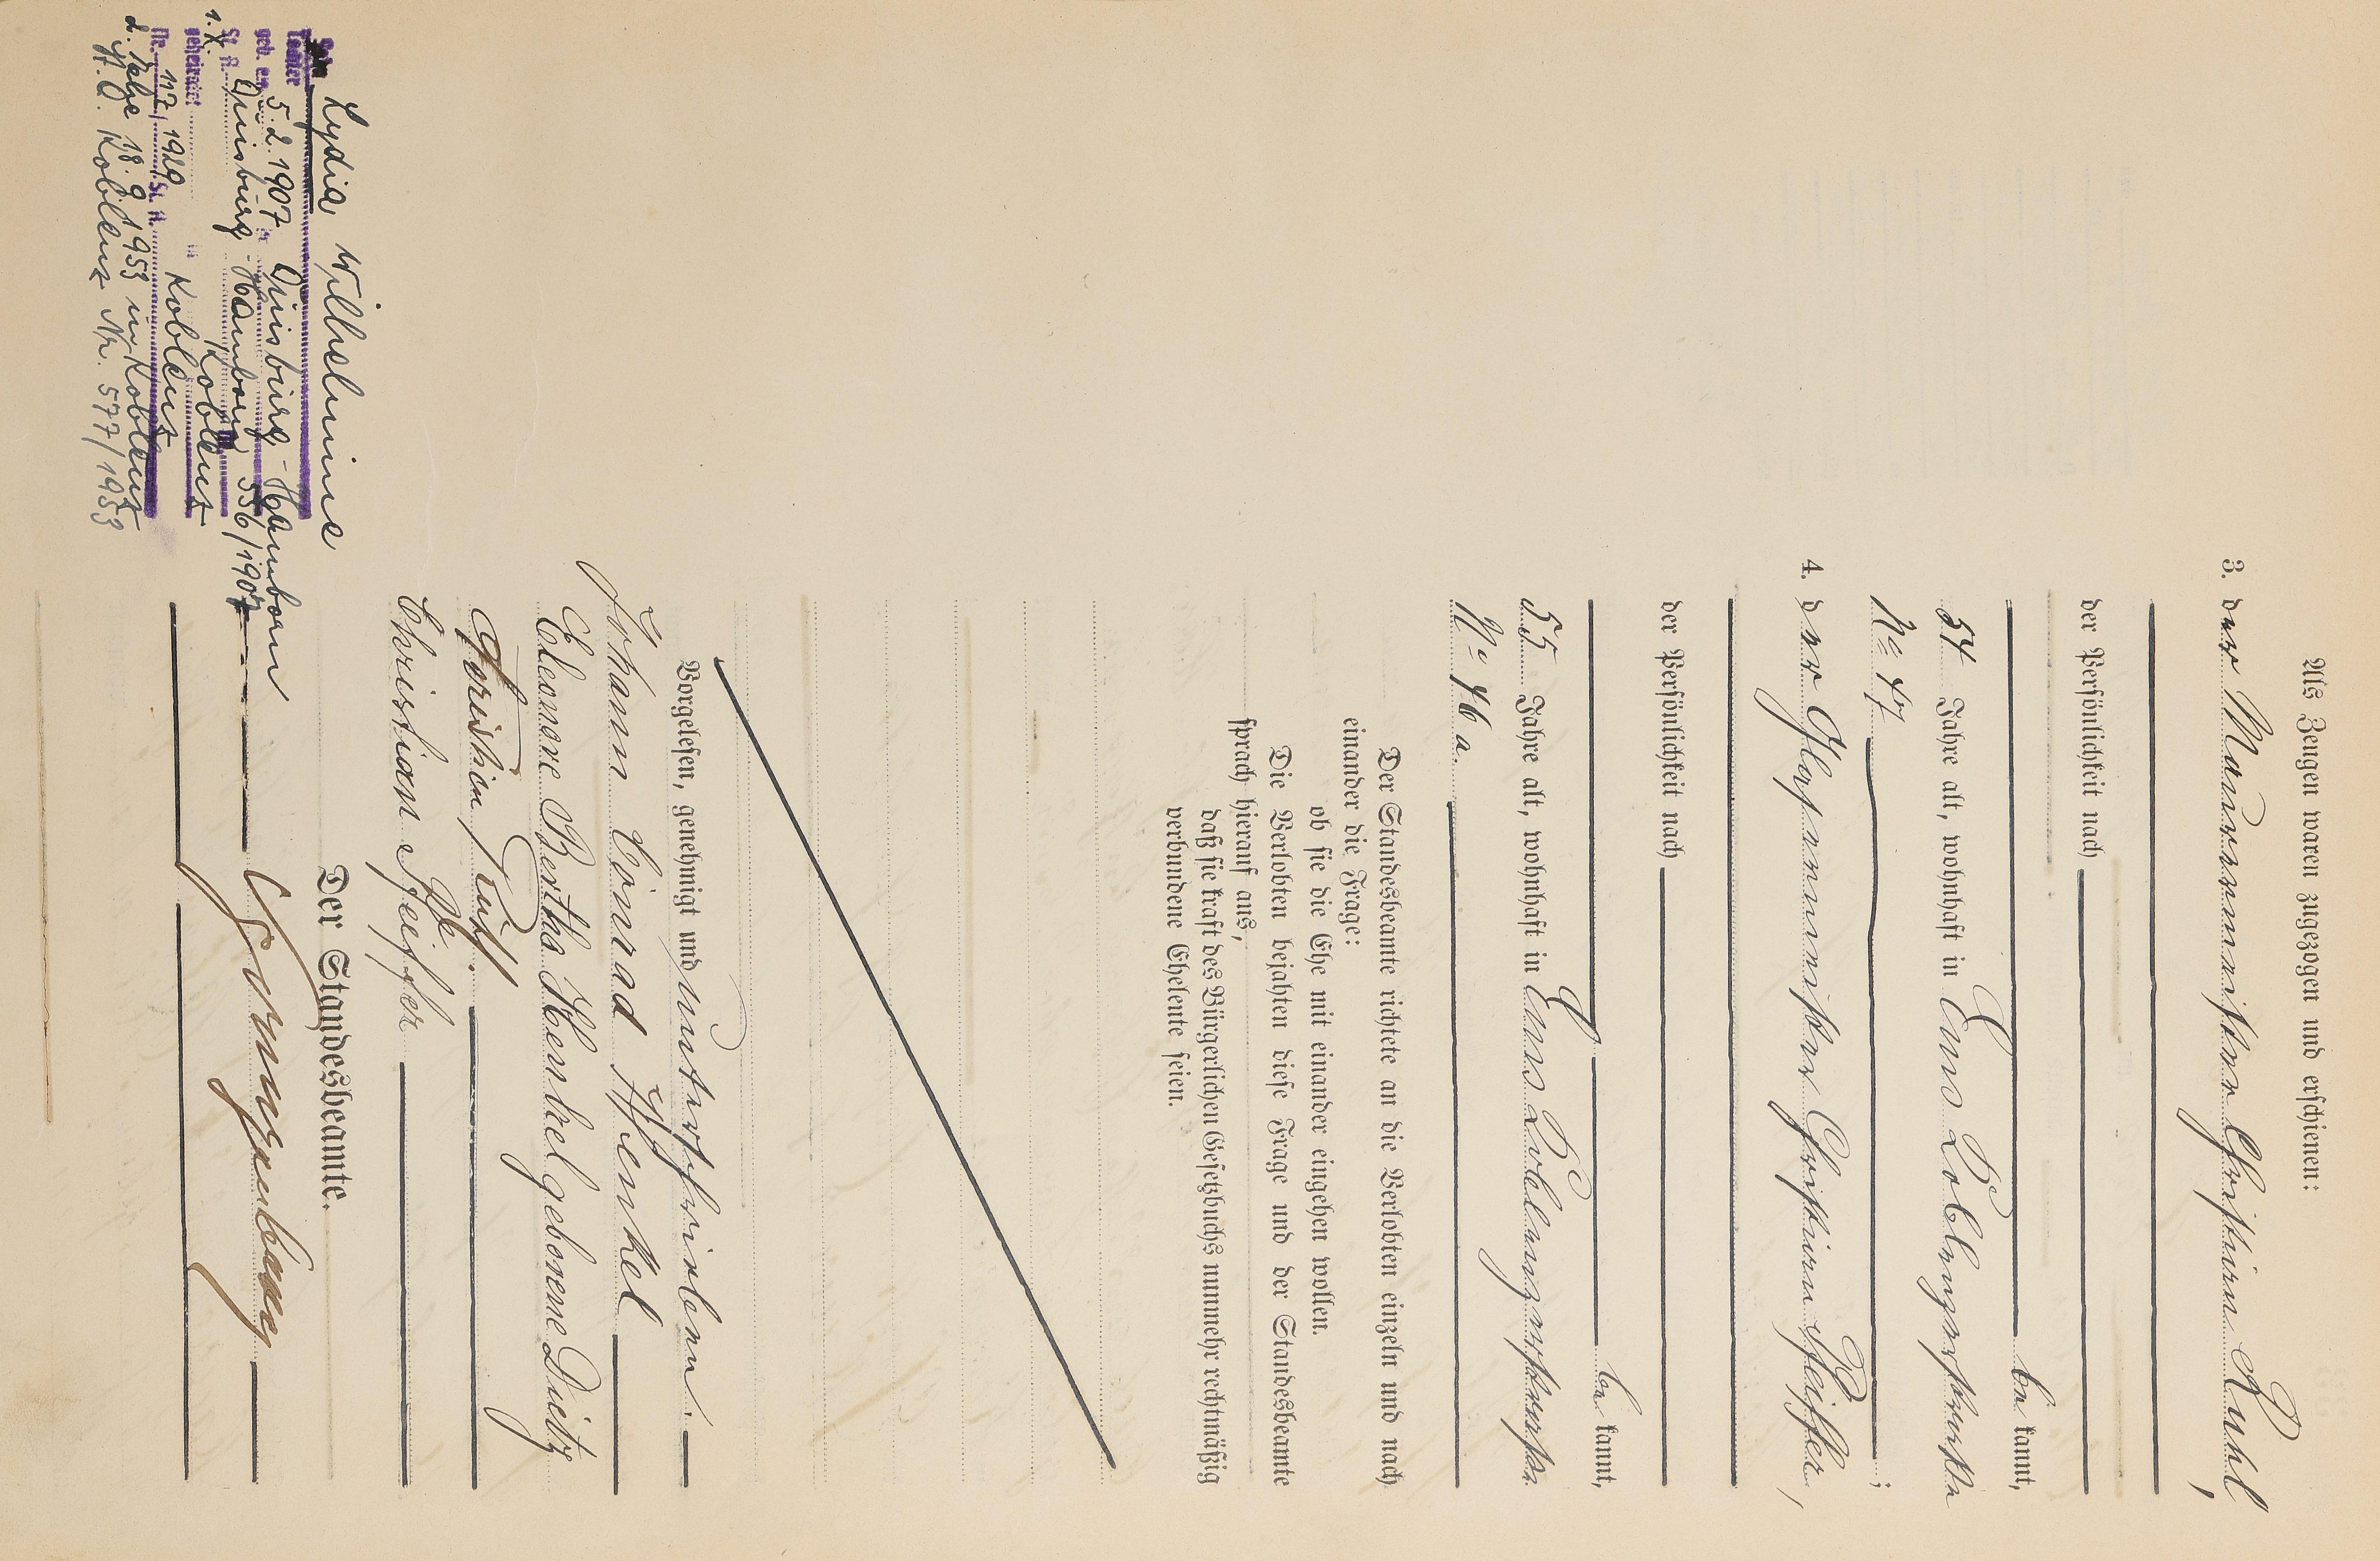 Als Zeugen waren zugezogen und erschienen:
3. der Maurermeister Christian Ruhl,
der Persönlichkeit nach
be kannt,
54 Jahre alt, wohnhaft in Ems Coblenzerstraße
No 47
4. der Glasermeister Christian Pfeiffer,
der Persönlichkeit nach
be kannt,
55 Jahre alt, wohnhaft in Ems Coblenzerstraße
No 46 a.
Der Standesbeamte richtete an die Verlobten einzeln und nach
einander die Frage:
ob sie die Ehe mit einander eingehen wollen.
Die Verlobten bejahten diese Frage und der Standesbeamte
sprach hierauf aus,
daß sie kraft des Bürgerlichen Gesetzbuchs nunmehr rechtmäßig
verbundene Eheleute seien.
Vorgelesen, genehmigt und unterschrieben.
Johann Conrad Henkel
Eleonore Bertha Henkel geborene Dietz
Christian Ruhl.
Christian Pfeiffer
Der Standesbeamte.
Lydia Wilhelmine
Tochter
geb. am 5.2.1907 in Duisburg-Hamborn
St. A. Duisburg-Hamborn 556/1907
1. X. geheiratet in Koblenz
Nr. 117/1929 St. A. Koblenz
d. Ehe 18.9.1953 in Koblenz
St. A. Koblenz Nr. 577/1953